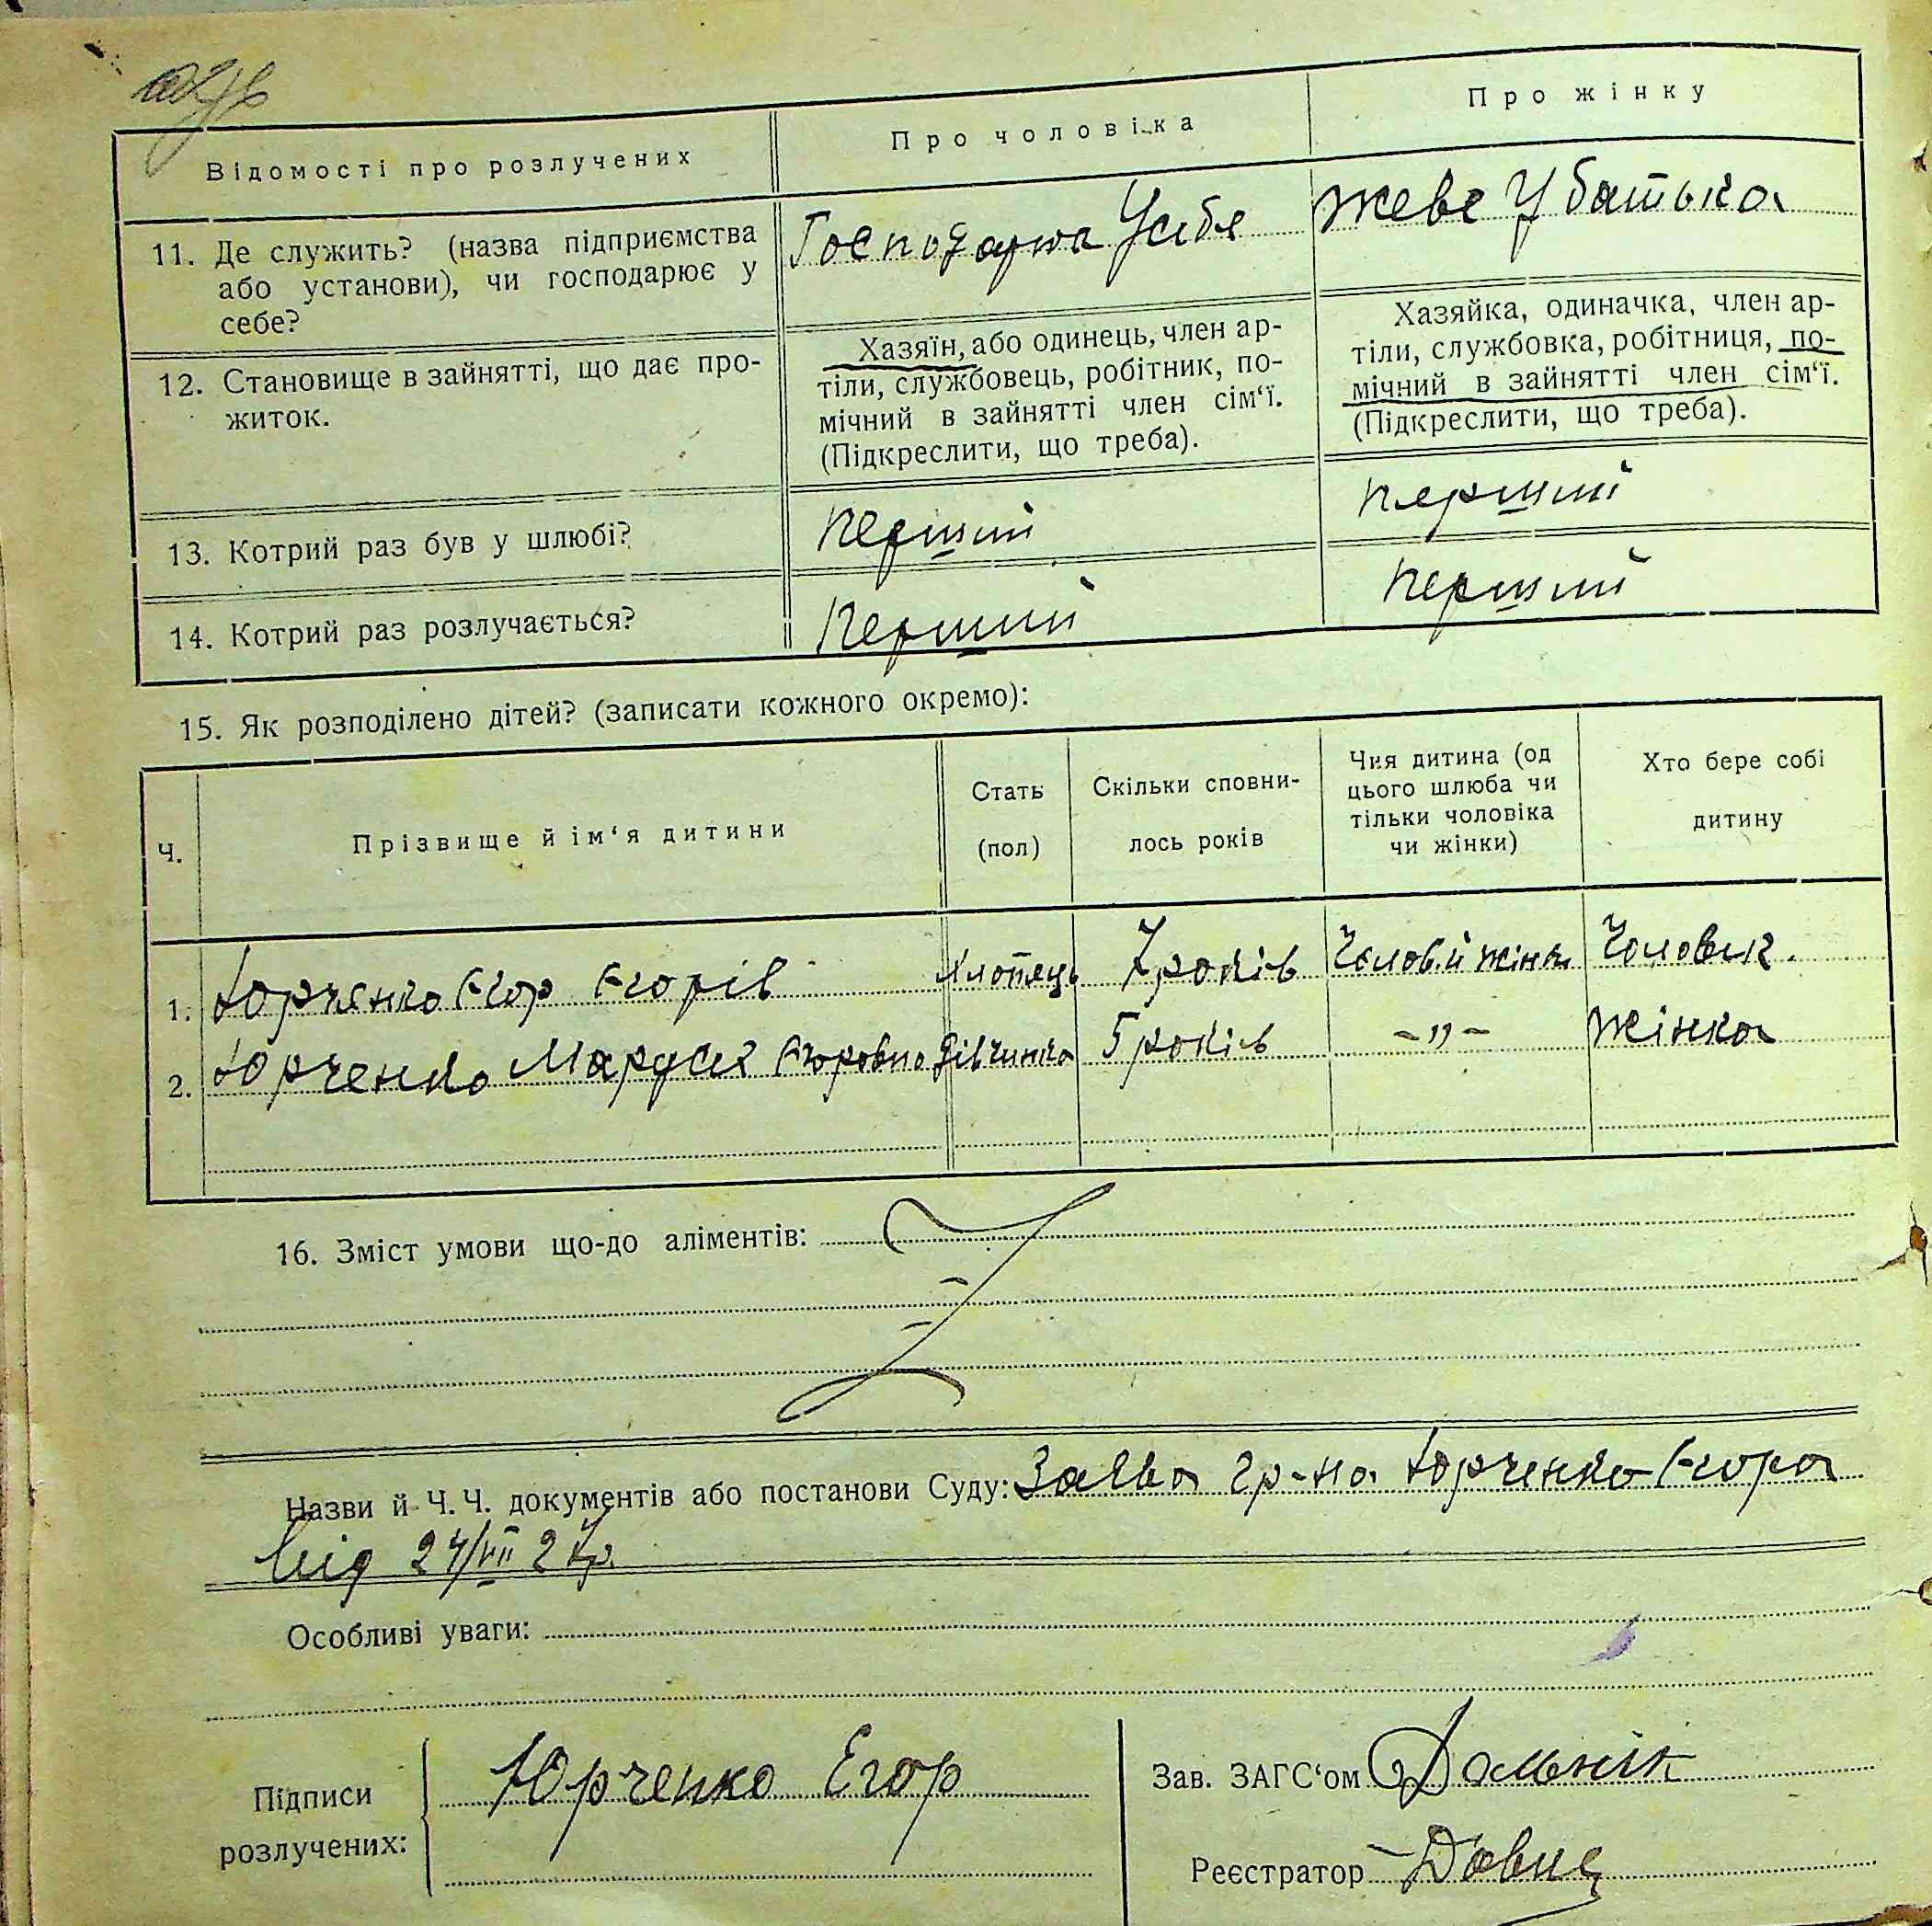 Відомості про розлучених
Про чоловіка
Про жінку
11. Де служить? (назва підприємства
або установи), чи господарює у
себе?
Господарка Усебя
Жеве У батька
12. Становище в зайнятті, що дає про-
житок.
Хазяїн, або одинець, член ар-
тіли, службовець, робітник, по-
мічний в зайнятті член сім‘ї.
(Підкреслити, що треба).
Хазяйка, одиначка, член ар-
тіли, службовка, робітниця, по-
мічний в зайнятті член сім‘ї.
(Підкреслити, що треба).
13. Котрий раз був у шлюбі?
Перший
Перший
14. Котрий раз розлучається?
Перший
Перший
15. Як розподілено дітей? (записати кожного окремо):
Ч.
Прізвище й ім‘я дитини
Стать
(пол)
Скільки сповни-
лось років
Чия дитина (од
цього шлюба чи
тільки чоловіка
чи жінки)
Хто бере собі
дитину
1. Юрченко Єгор Єгорів Хлопець 7 років Чолов. й жінк Чоловик.
2. Юрченко Маруся Єгоровно дівчинка 5 років -"- Жінка
16. Зміст умови що-до аліментів:
Назви й Ч.Ч. документів або постанови Суду: Заява гр-на Юрченко Єгора
від 24/VII 27р.
Особливі уваги:
Підписи
розлучених:
Юрченко Егор
Зав. ЗАГС‘ом
Реєстратор